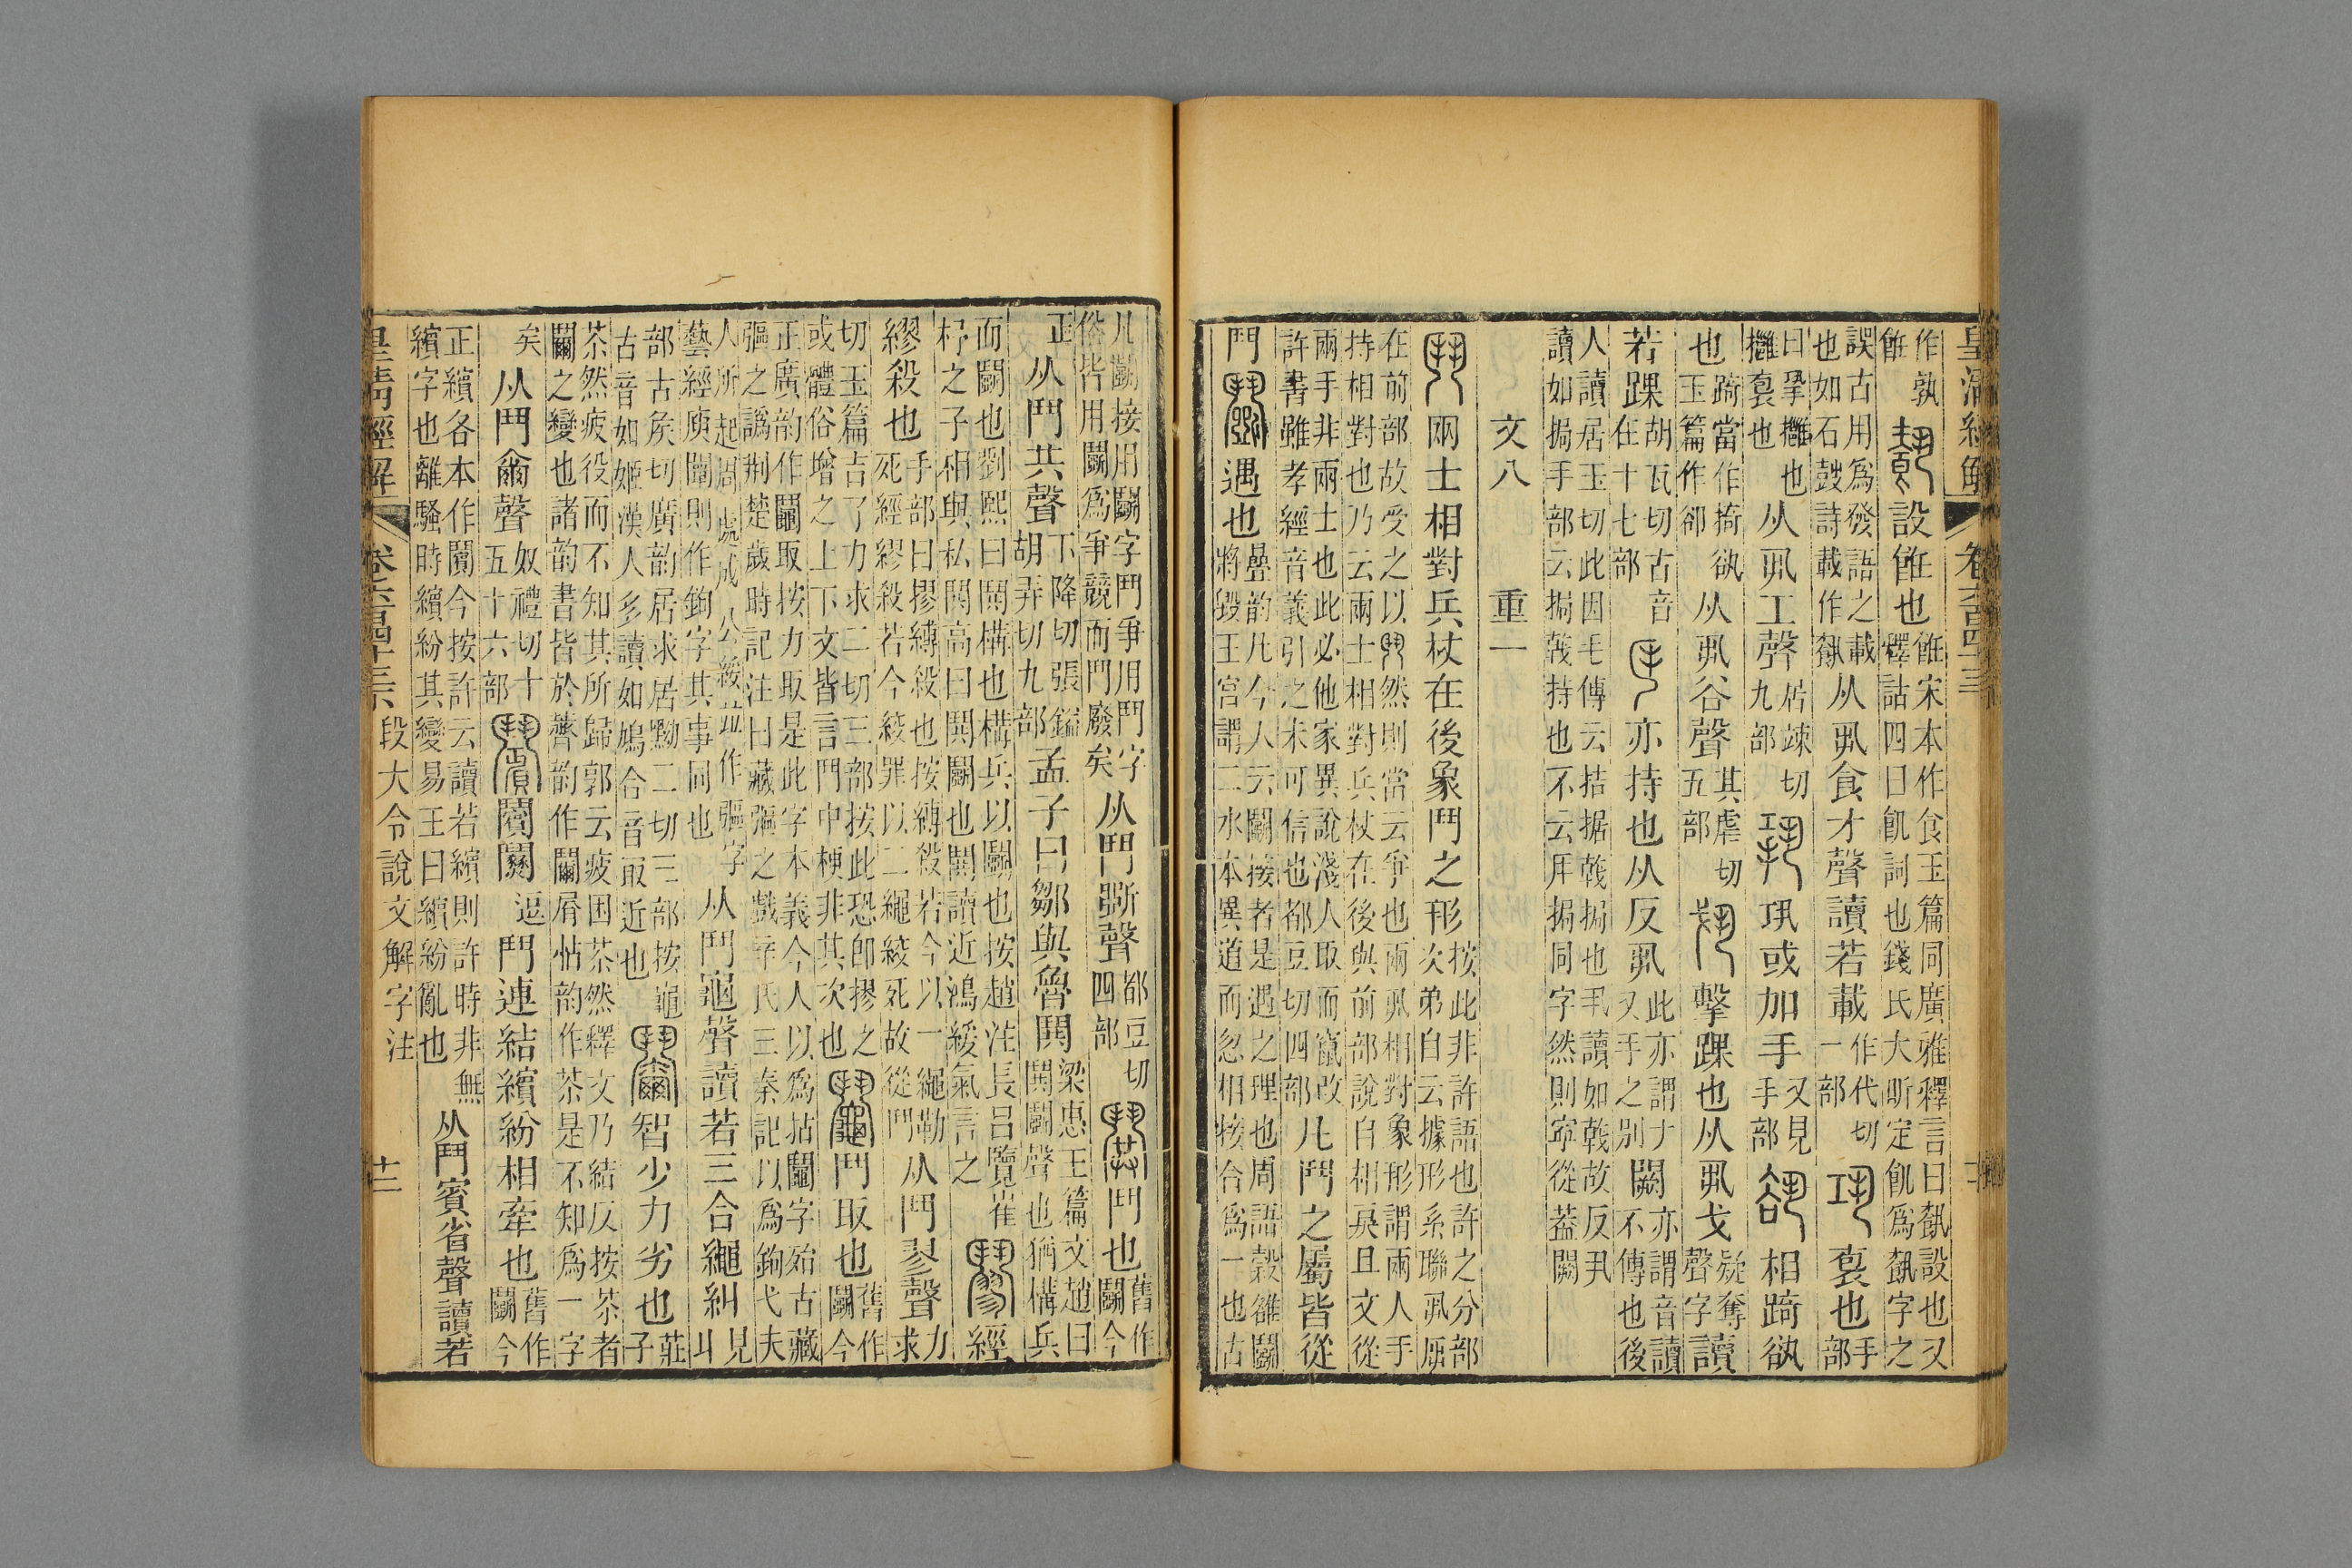 皇清經解 卷六百四十三
作孰飵 設飪也飪宋本作食玉篇同廣雅釋言曰𩚳設也又釋詁四曰飢詞也錢氏大昕定飢爲𩚳字之
誤古用爲發語之載也如石鼓詩載作𩛥从丮食才聲讀若載作代切一部 褱也手部
曰㧬攤也攤褱也从丮工聲居竦切九部 巩或加手又見手部 相踦𧮫
也踦當作掎𧮫玉篇作卻从丮谷聲其虐切五部 擊踝也从丮戈疑奪聲字讀
若踝胡瓦切古音在十七部 亦持也从反丮此亦謂ナ又手之別闕亦謂音讀不傳也後
人讀居玉切此因毛傳云拮据戟挶也丮讀如戟故反丮讀如挶手部云挶戟持也不云𠃨挶同字然則寍從葢闕
文八 重一
鬥 兩士相對兵杖在後象鬥之形按此非許語也許之分部次弟自云據形系聯丮𠃨
在前部故受之以鬥然則當云爭也兩丮相對象形謂兩人手持相對也乃云兩士相對兵杖在後與前部說自相戾且文從
兩手非兩士也此必他家異說淺人取而竄改許書雖孝經音義引之未可信也都豆切四部凡鬥之屬皆從
鬥 鬬 遇也疊韵凡今人云鬬接者是遇之理也周語穀雒鬬將毀王宮謂二水本異道而忽相接合爲一也古
凡鬬接用鬬字鬥爭用鬥字俗皆用鬬爲爭競而鬥廢矣从鬥斲聲都豆切四部 鬨 鬥也舊作鬬今
正从鬥共聲下降切張鎰胡弄切九部孟子曰鄒與魯鬨梁惠王篇文趙曰鬨鬬聲也猶構兵
而鬬也劉熙曰鬨構也構兵以鬬也按趙注長呂覽崔杼之子相與私鬨高曰鬨鬬也鬨讀近鴻緩氣言之 經
繆殺也手部曰摎縛殺也按縛殺若今以一繩勒死經繆殺若今絞罪以二繩絞死故從鬥从鬥翏聲力求
切玉篇吉了力求二切三部按此恐卽摎之或體俗增之上下文皆言鬥中梗非其次也 鬮 鬥取也舊作鬬今
正廣韵作鬮取按力取是此字本義今人以爲拈鬮字殆古藏彄之譌荆楚歲時記注曰藏彄之戲辛氏三秦記以爲鉤弋夫
人所起周處成公綏竝作彄字藝經庾闡則作鉤字其事同也从鬥龜聲讀若三合繩糾見丩
部古矦切廣韵居求居黝二切三部按龜古音如姬漢人多讀如鳩合音取近也 智少力劣也莊子
茶然疲役而不知其所歸郭云疲困茶然釋文乃結反按茶者鬫之變也諸韵書皆於薺韵作鬫屑怗韵作茶是不知爲一字
矣从鬥爾聲奴禮切十五十六部 鬥連結繽紛相牽也舊作鬬今
正繽各本作鬬今按許云讀若繽則許時非無繽字也離騷時繽紛其變易王曰繽紛亂也从鬥賓省聲讀若
皇清經解 卷六百四十三 段大令說文解字注 十二